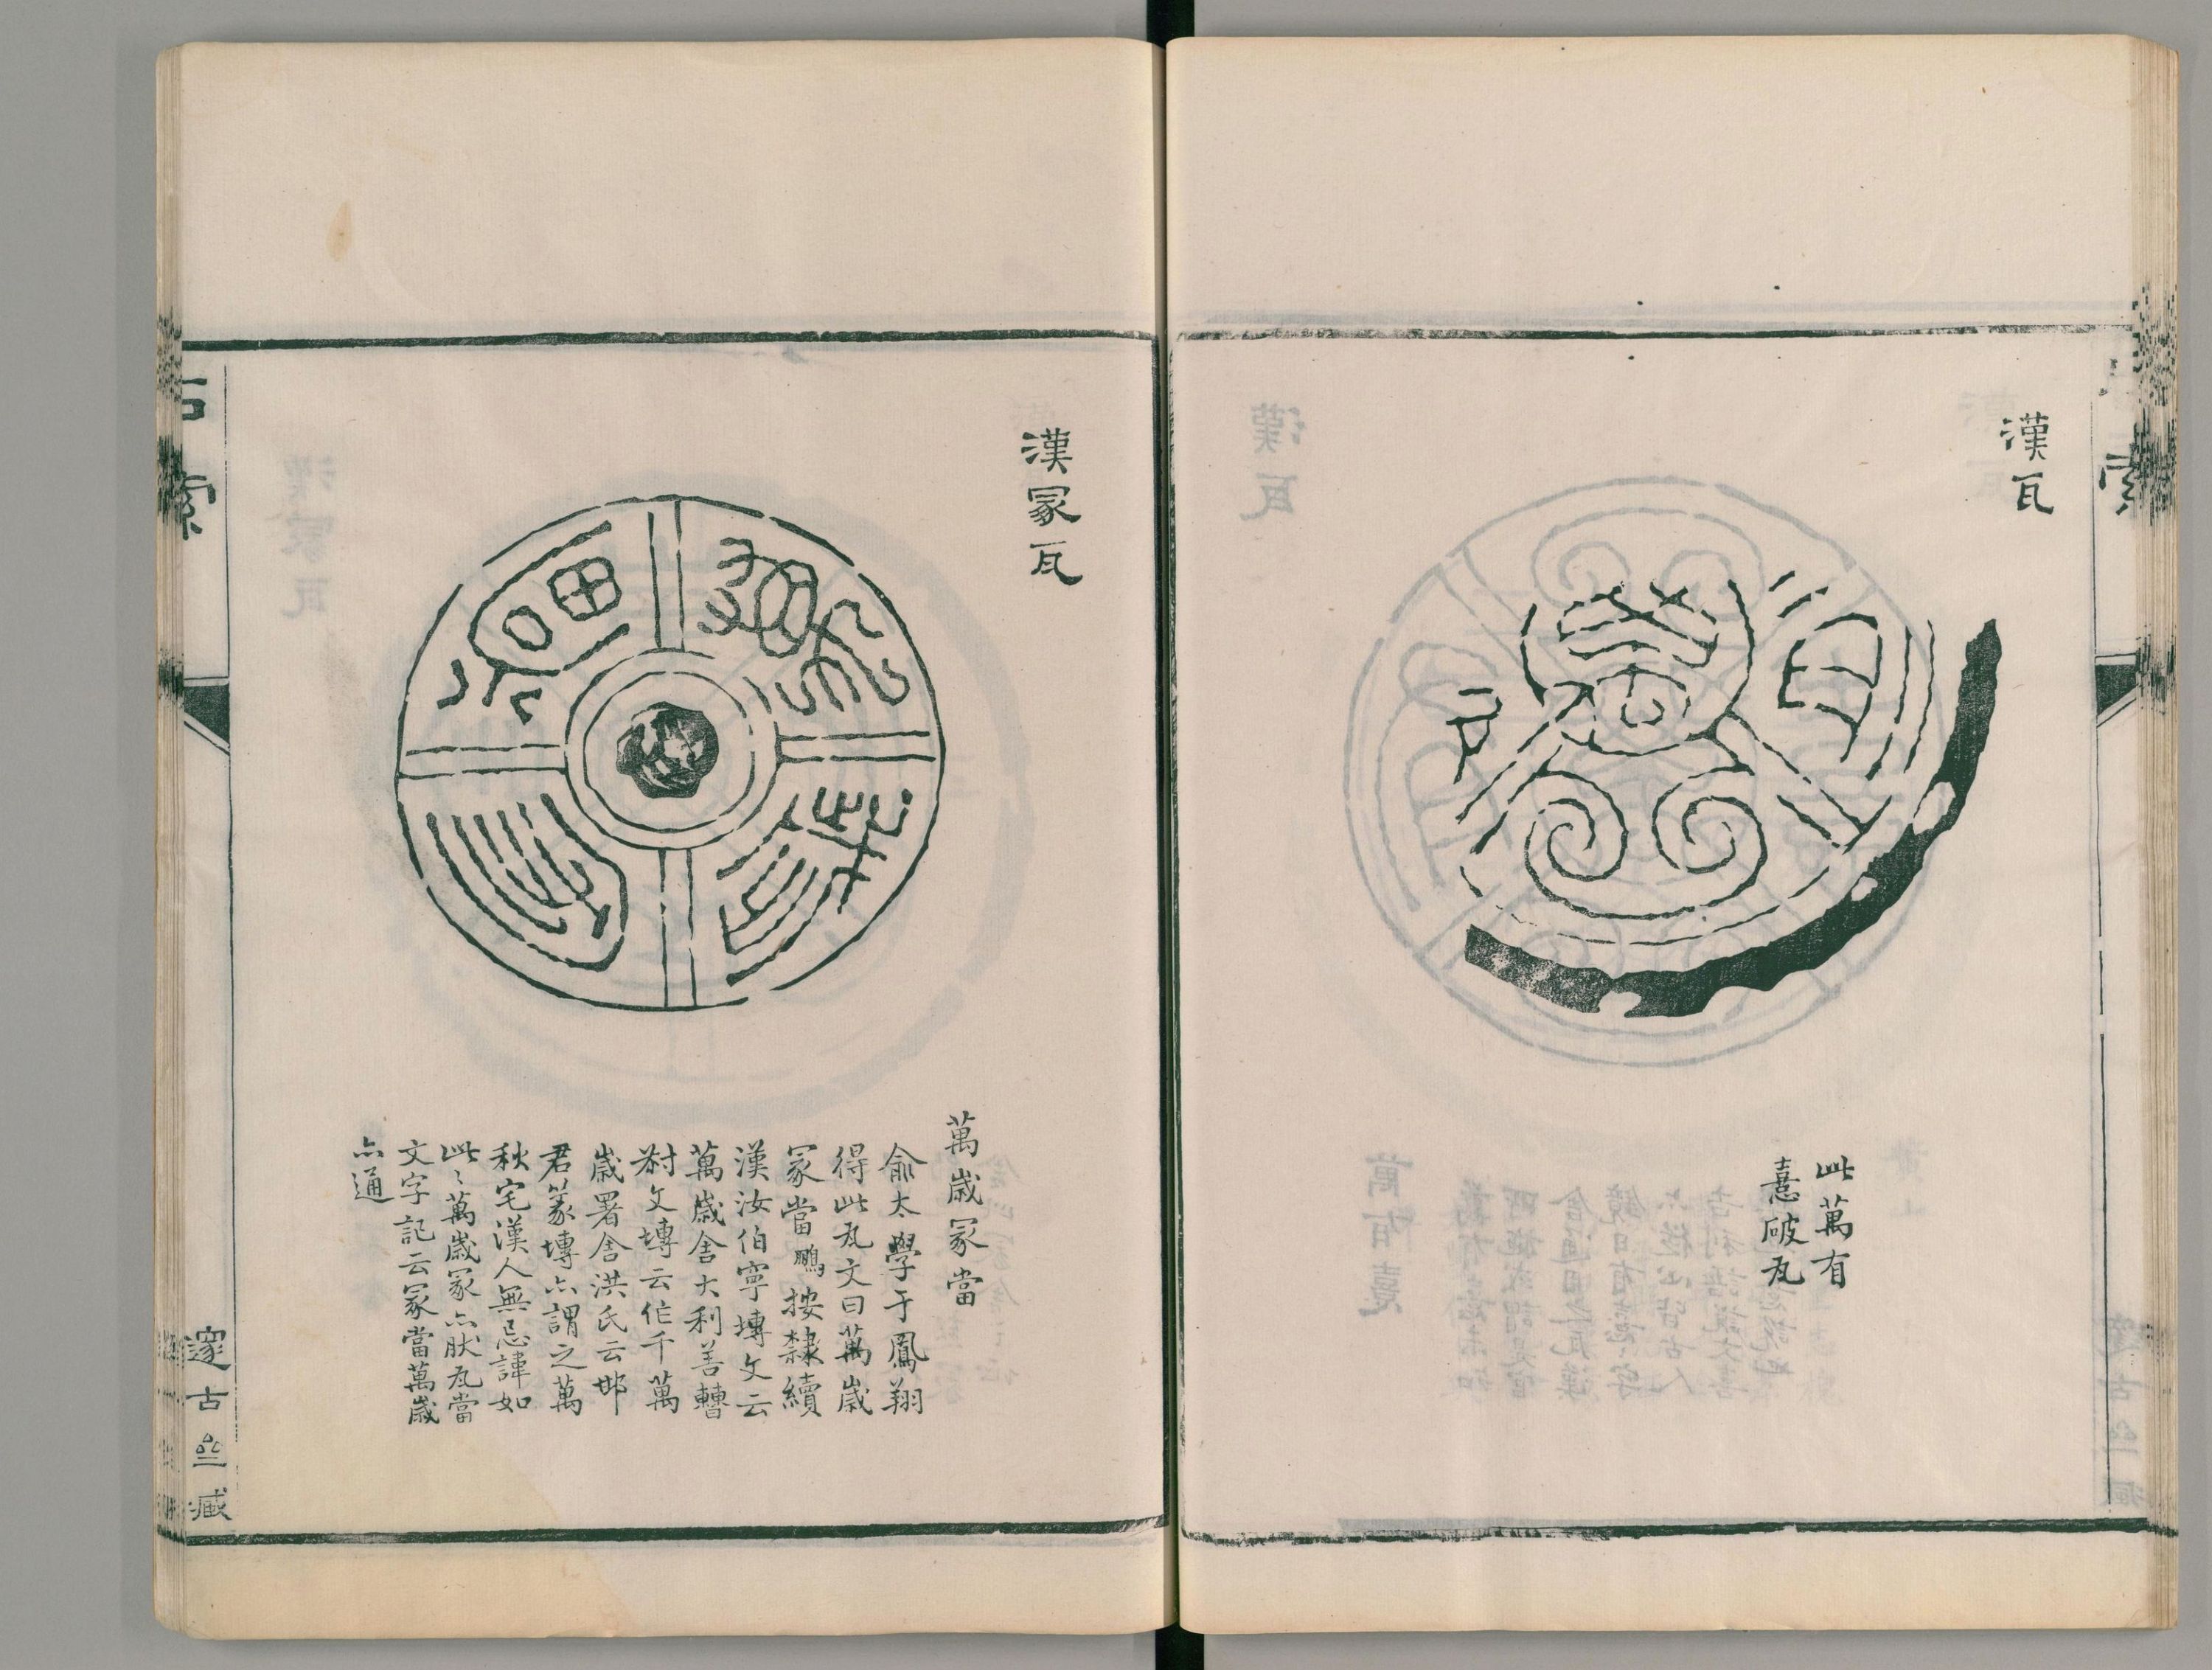 漢瓦
此萬有
憙破瓦
漢冢瓦
萬歲冢當
俞太學于鳳翔
得此瓦文曰萬歲
冢當鵬按隸續
漢汝伯寧塼文云
萬歲舍大利善轊
尌文塼云作千萬
歲署舍洪氏云邯
君篆塼亦謂之萬
秋宅漢人無忌諱如
此〻萬歲冢亦肰瓦當
文字記云冢當萬歲
亦通
石索
邃古亝臧